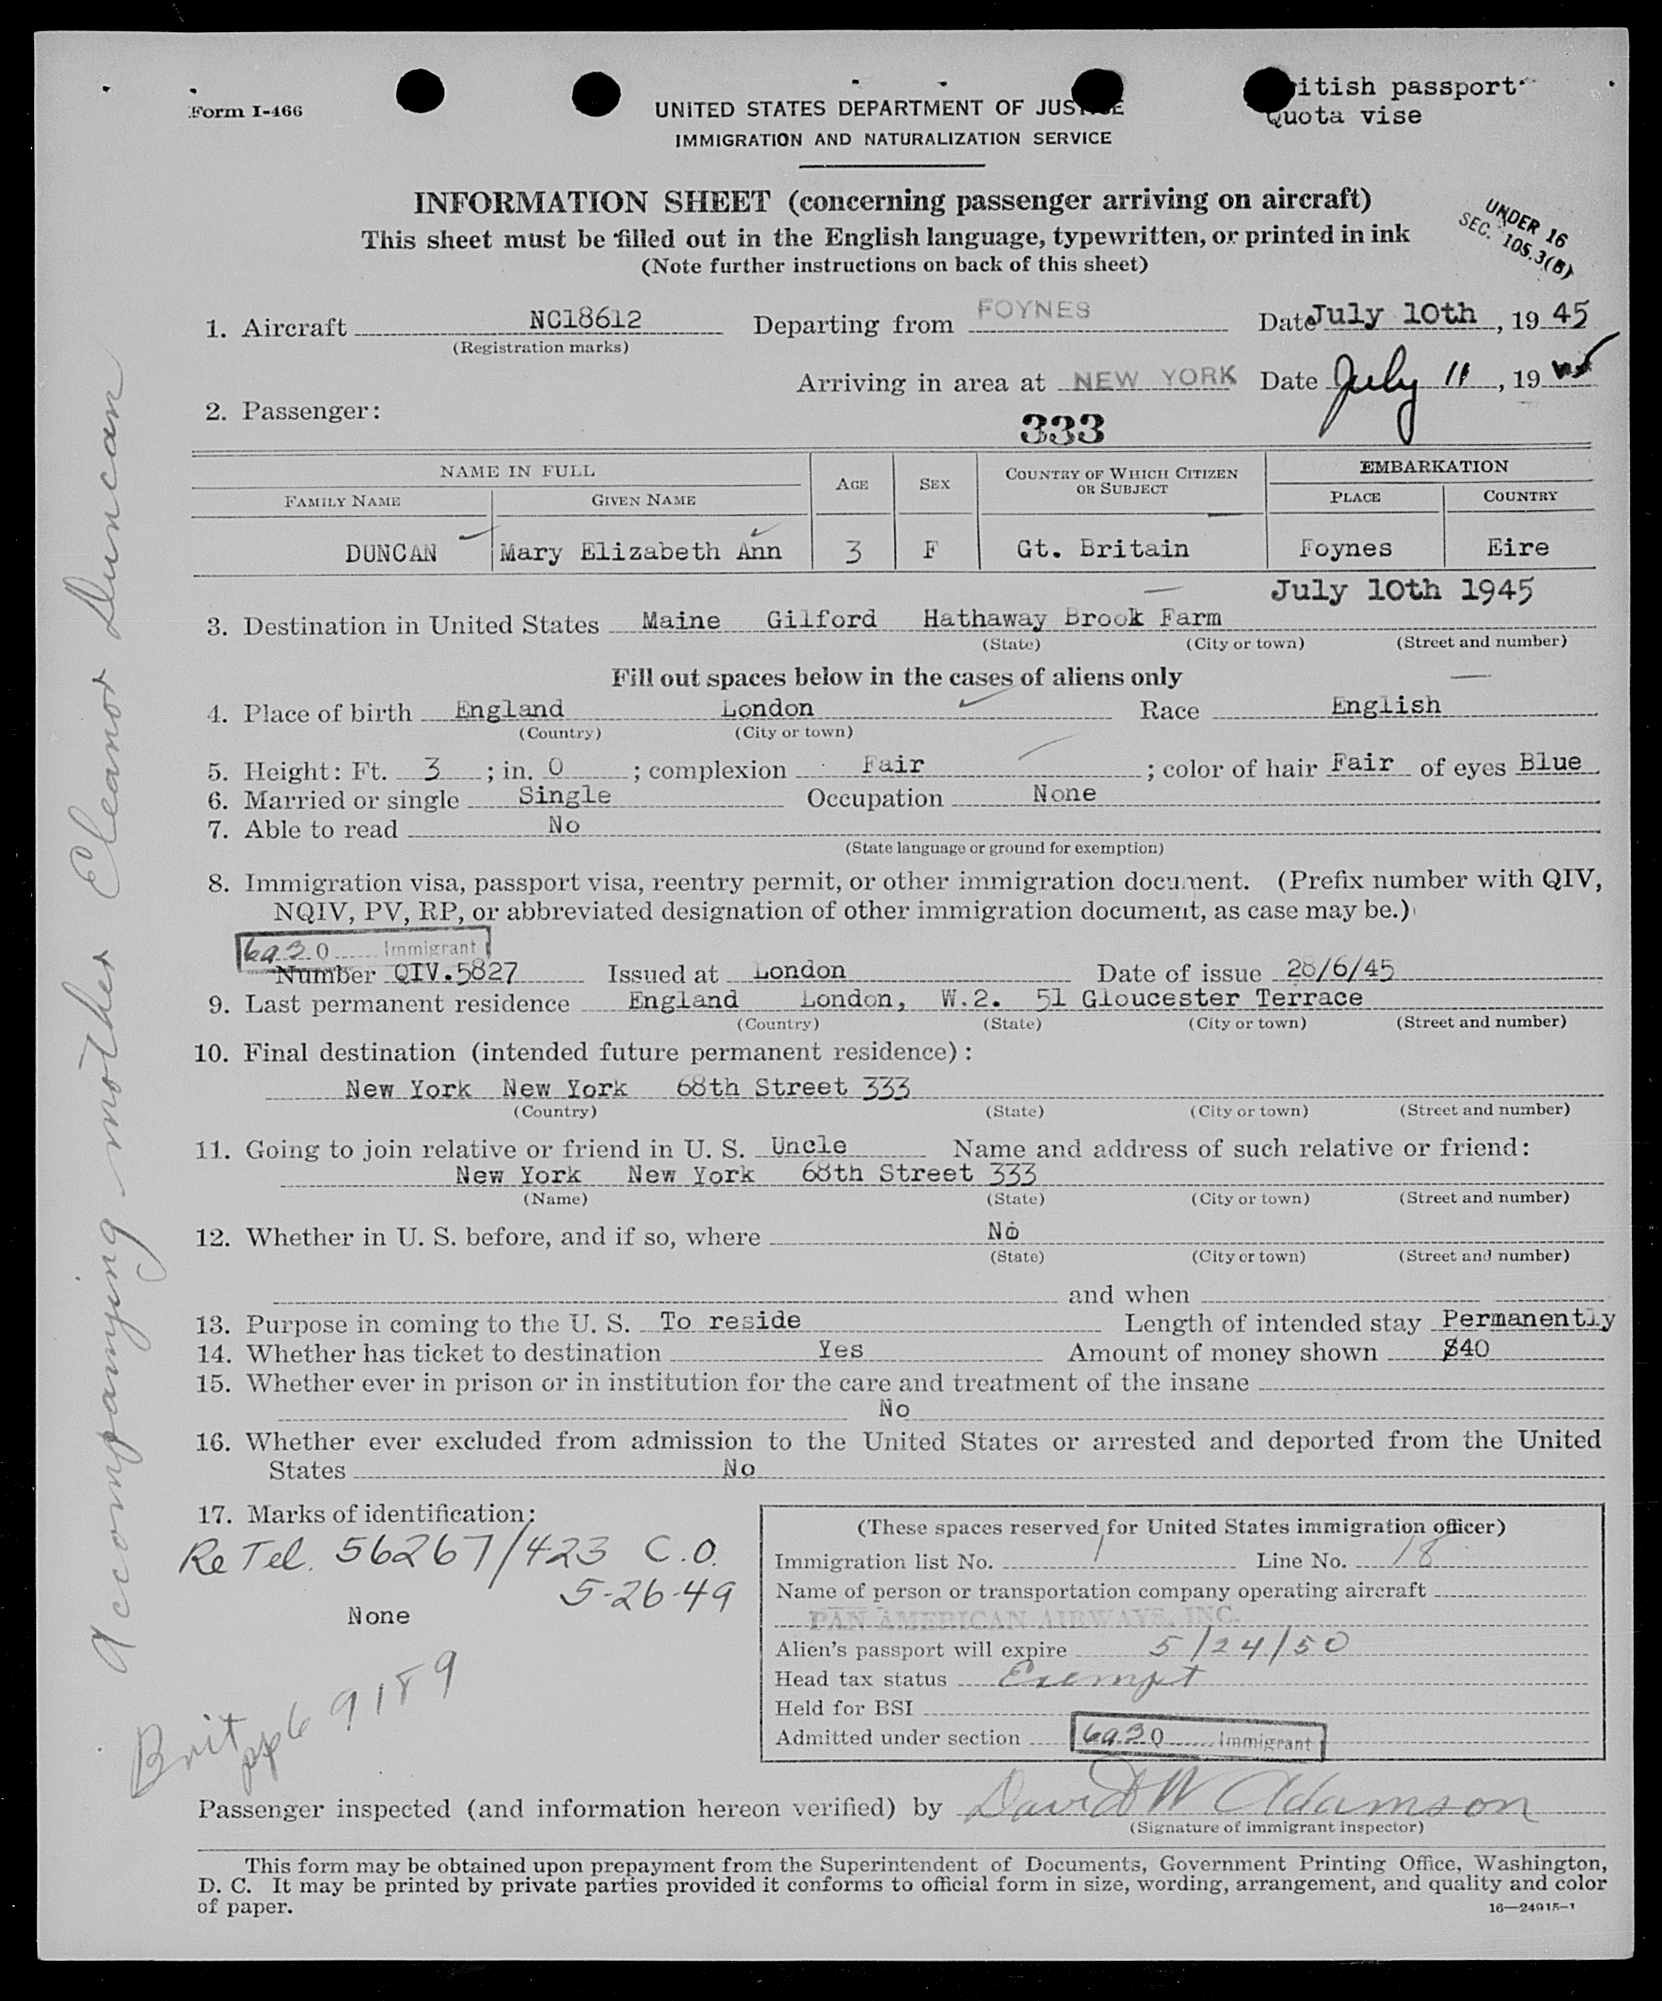 itish passport
Quota vise
Form I-466
UNITED STATES DEPARTMENT OF JUSTICE
IMMIGRATION AND NATURALIZATION SERVICE
INFORMATION SHEET (concerning passenger arriving on aircraft)
This sheet must be filled out in the English language, typewritten, or printed in ink
(Note further instructions on back of this sheet)
UNDER 16
SEC. 105.3(B)
1. Aircraft NC18612 Departing from FOYNES Date July 10th, 19 45
(Registration marks)
Arriving in area at NEW YORK Date July 11, 19 45
2. Passenger:
333
NAME IN FULL AGE SEX COUNTRY OF WHICH CITIZEN OR SUBJECT EMBARKATION
FAMILY NAME GIVEN NAME PLACE COUNTRY
DUNCAN Mary Elizabeth Ann 3 F Gt. Britain Foynes Eire
July 10th 1945
3. Destination in United States Maine Gilford Hathaway Brook Farm
(State) (City or town) (Street and number)
Fill out spaces below in the cases of aliens only
4. Place of birth England London Race English
(Country) (City or town)
5. Height: Ft. 3 ; in. 0 ; complexion Fair ; color of hair Fair of eyes Blue
6. Married or single Single Occupation None
7. Able to read No
(State language or ground for exemption)
8. Immigration visa, passport visa, reentry permit, or other immigration document. (Prefix number with QIV,
NQIV, PV, RP, or abbreviated designation of other immigration document, as case may be.)
6a3 Q Immigrant
Number QIV.5827 Issued at London Date of issue 28/6/45
9. Last permanent residence England London, W.2. 51 Gloucester Terrace
(Country) (State) (City or town) (Street and number)
10. Final destination (intended future permanent residence):
New York New York 68th Street 333
(Country) (State) (City or town) (Street and number)
11. Going to join relative or friend in U. S. Uncle Name and address of such relative or friend:
New York New York 68th Street 333
(Name) (State) (City or town) (Street and number)
12. Whether in U. S. before, and if so, where No
(State) (City or town) (Street and number)
and when
13. Purpose in coming to the U. S. To reside Length of intended stay Permanently
14. Whether has ticket to destination Yes Amount of money shown $40
15. Whether ever in prison or in institution for the care and treatment of the insane
No
16. Whether ever excluded from admission to the United States or arrested and deported from the United
States No
17. Marks of identification:
Re Tel. 56267/423 C.O.
5-26-49
None
Brit pp 69189
Accompanying mother Eleanor Duncan
(These spaces reserved for United States immigration officer)
Immigration list No. 1 Line No. 18
Name of person or transportation company operating aircraft
PAN AMERICAN AIRWAYS, INC.
Alien's passport will expire 5/24/50
Head tax status Exempt
Held for BSI
Admitted under section 6a3 Q Immigrant
Passenger inspected (and information hereon verified) by David W Adamson
(Signature of immigrant inspector)
This form may be obtained upon prepayment from the Superintendent of Documents, Government Printing Office, Washington,
D. C. It may be printed by private parties provided it conforms to official form in size, wording, arrangement, and quality and color
of paper.
16—24915-1